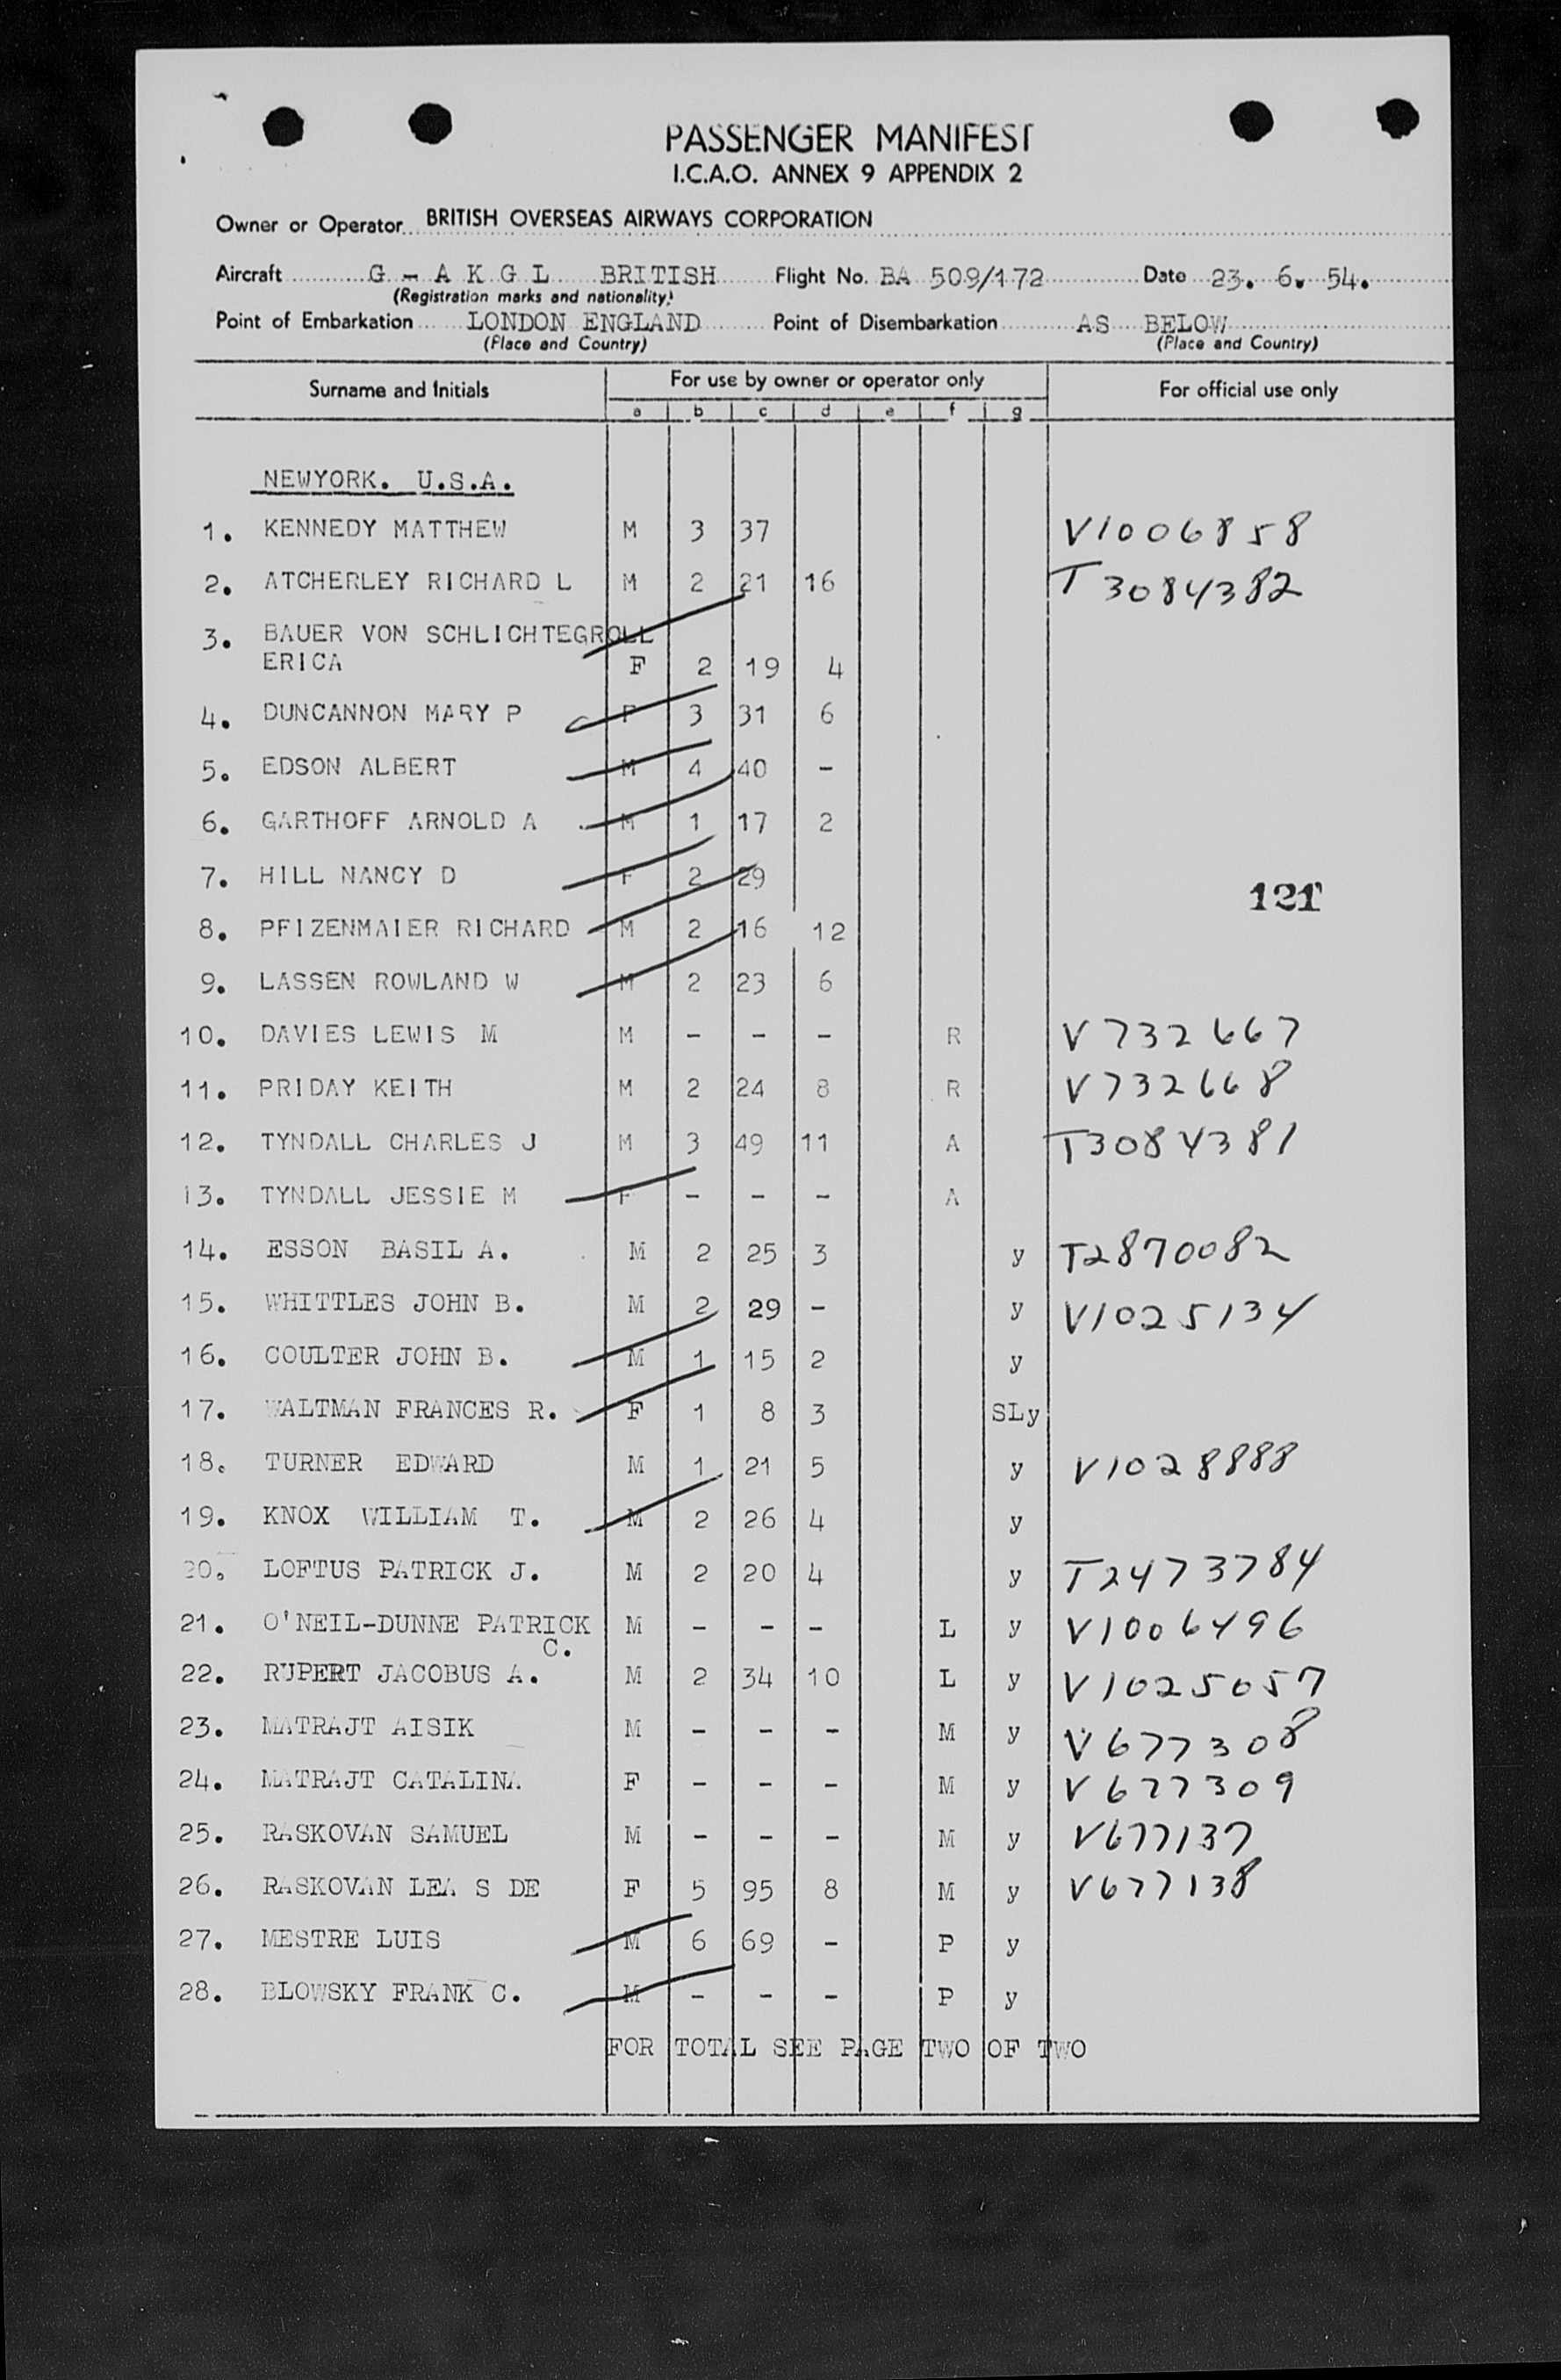 PASSENGER MANIFEST
I.C.A.O. ANNEX 9 APPENDIX 2
Owner or Operator BRITISH OVERSEAS AIRWAYS CORPORATION
Aircraft G - A K G L BRITISH Flight No. BA 509/172 Date 23. 6. 54.
(Registration marks and nationality)
Point of Embarkation LONDON ENGLAND Point of Disembarkation AS BELOW
(Place and Country) (Place and Country)
Surname and Initials For use by owner or operator only For official use only
a b c d e f g
NEWYORK. U.S.A.
1. KENNEDY MATTHEW M 3 37 V1006858
2. ATCHERLEY RICHARD L M 2 21 16 T 3084382
3. BAUER VON SCHLICHTEGROLL
ERICA F 2 19 4
4. DUNCANNON MARY P F 3 31 6
5. EDSON ALBERT M 4 40 -
6. GARTHOFF ARNOLD A M 1 17 2
7. HILL NANCY D F 2 29
121
8. PFIZENMAIER RICHARD M 2 16 12
9. LASSEN ROWLAND W M 2 23 6
10. DAVIES LEWIS M M - - - R V 732667
11. PRIDAY KEITH M 2 24 8 R V 732668
12. TYNDALL CHARLES J M 3 49 11 A T3084381
13. TYNDALL JESSIE M F - - - A
14. ESSON BASIL A. M 2 25 3 y T2870082
15. WHITTLES JOHN B. M 2 29 - y V1025134
16. COULTER JOHN B. M 1 15 2 y
17. WALTMAN FRANCES R. F 1 8 3 SLy
18. TURNER EDWARD M 1 21 5 y V1028888
19. KNOX WILLIAM T. M 2 26 4 y
20. LOFTUS PATRICK J. M 2 20 4 y T2473784
21. O'NEIL-DUNNE PATRICK M - - - L y V1006496
C.
22. RUPERT JACOBUS A. M 2 34 10 L y V1025057
23. MATRAJT AISIK M - - - M y V677308
24. MATRAJT CATALINA F - - - M y V677309
25. RASKOVAN SAMUEL M - - - M y V677137
26. RASKOVAN LEA S DE F 5 95 8 M y V677138
27. MESTRE LUIS M 6 69 - P y
28. BLOWSKY FRANK C. M - - - P y
FOR TOTAL SEE PAGE TWO OF TWO